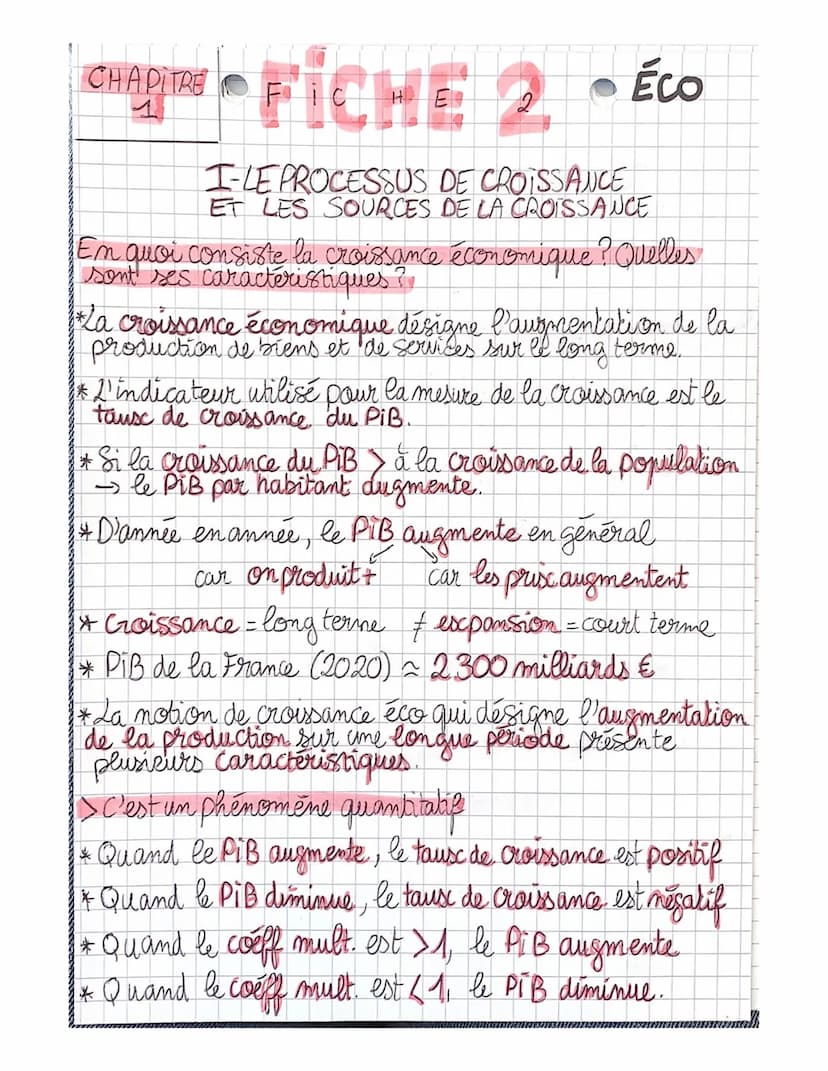 CHAPITRE
1
FiCHE 2
ÉCO
I-LE PROCESSUS DE CROiSSANCE
ET LES SOURCES DE LA CROISSANCE
En quoi consiste la croissance économique ? Quelles
sont ses caractéristiques ?
*La croissance économique désigne l'augmentation de la
production de biens et de services sur le long terme.
* L'indicateur utilisé pour la mesure de la croissance est le
taux de croissance du PiB.
* Si la croissance du PiB > à la croissance de la population
→ le PiB par habitant augmente.
* D'année en année, le PiB augmente en général
car on produit + car les prix augmentent
* Croissance = long terme ≠ expansion = court terme
* PiB de la France (2020) ≈ 2300 milliards €
* La notion de croissance éco qui désigne l'augmentation
de la production sur une longue période présente
plusieurs caractéristiques.
> C'est un phénomène quantitatif
* Quand le PiB augmente, le taux de croissance est positif
* Quand le PiB diminue, le taux de croissance est négatif
* Quand le coéff mult. est >1, le PiB augmente
* Quand le coéff mult. est <1, le PiB diminue.